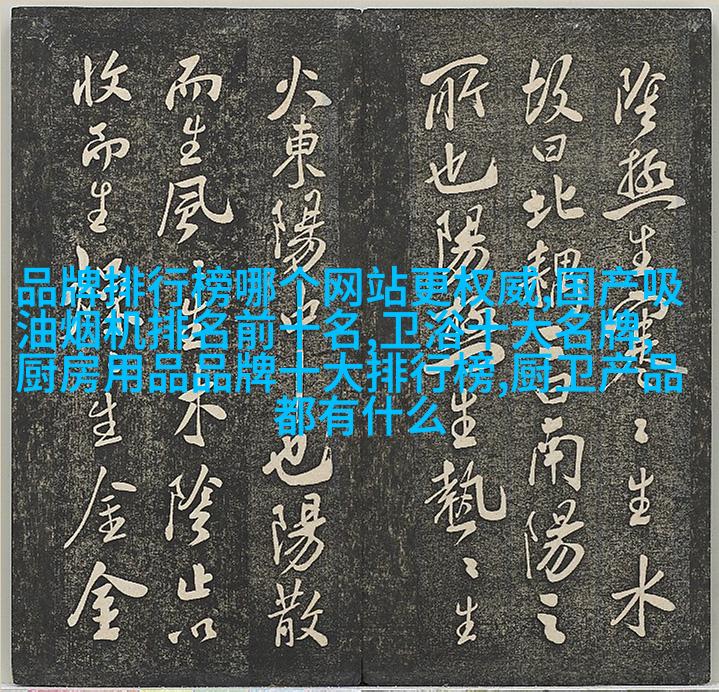 品牌排行榜哪个网站更权威,国产吸
油烟机排名前十名,卫浴十大名牌,
厨房用品品牌十大排行榜,厨卫产品
都有什么
陰極生寒〻生水
故曰北耦曰南陽之
所也陽生熱〻生
火東陽中也陽散
而生風〻生木陰止以
收而生生金金